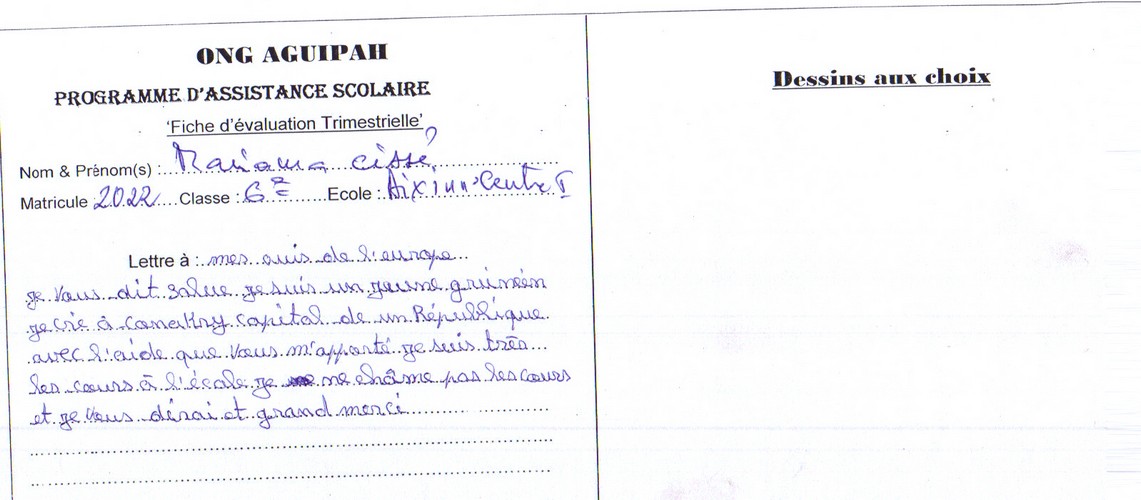 ONG AGUIPAH
PROGRAMME D'ASSISTANCE SCOLAIRE
'Fiche d'évaluation Trimestrielle'
Nom & Prénom(s) : Mariama cissé
Matricule : 2022 Classe : 6e Ecole : Dixinn Centre I
Lettre à : mes amis de l'europe
je vous dit salue je suis un jeune guinéén
je vie à Conakry capital de un République
avec l'aide que vous m'apporté je suis très
les cours à l'école je ne chôme pas les cours
et je vous dirai et grand merci
Dessins aux choix